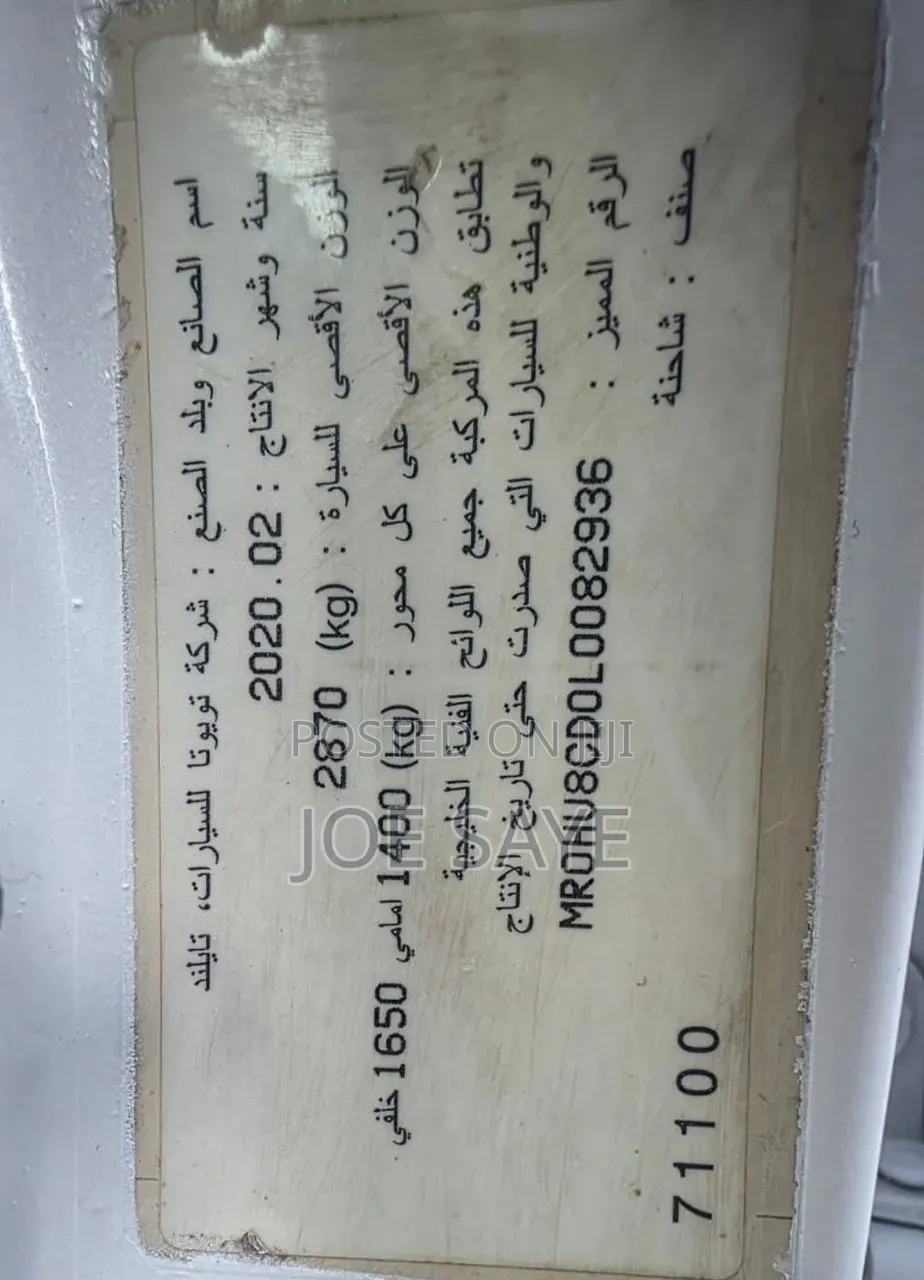 اسم الصانع وبلد الصنع : شركة تويوتا للسيارات، تايلند
سنة وشهر الانتاج : 2020.02
الوزن الأقصى للسيارة : (kg) 2870
الوزن الأقصى على كل محور : (kg) 1400 امامي 1650 خلفي
تطابق هذه المركبة جميع اللوائح الفنية الخليجية
والوطنية للسيارات التي صدرت حتى تاريخ الإنتاج
الرقم المميز : MR0HU8CD0L0082936
صنف : شاحنة
71100
POSTED ON JIJI
JOE SAYE